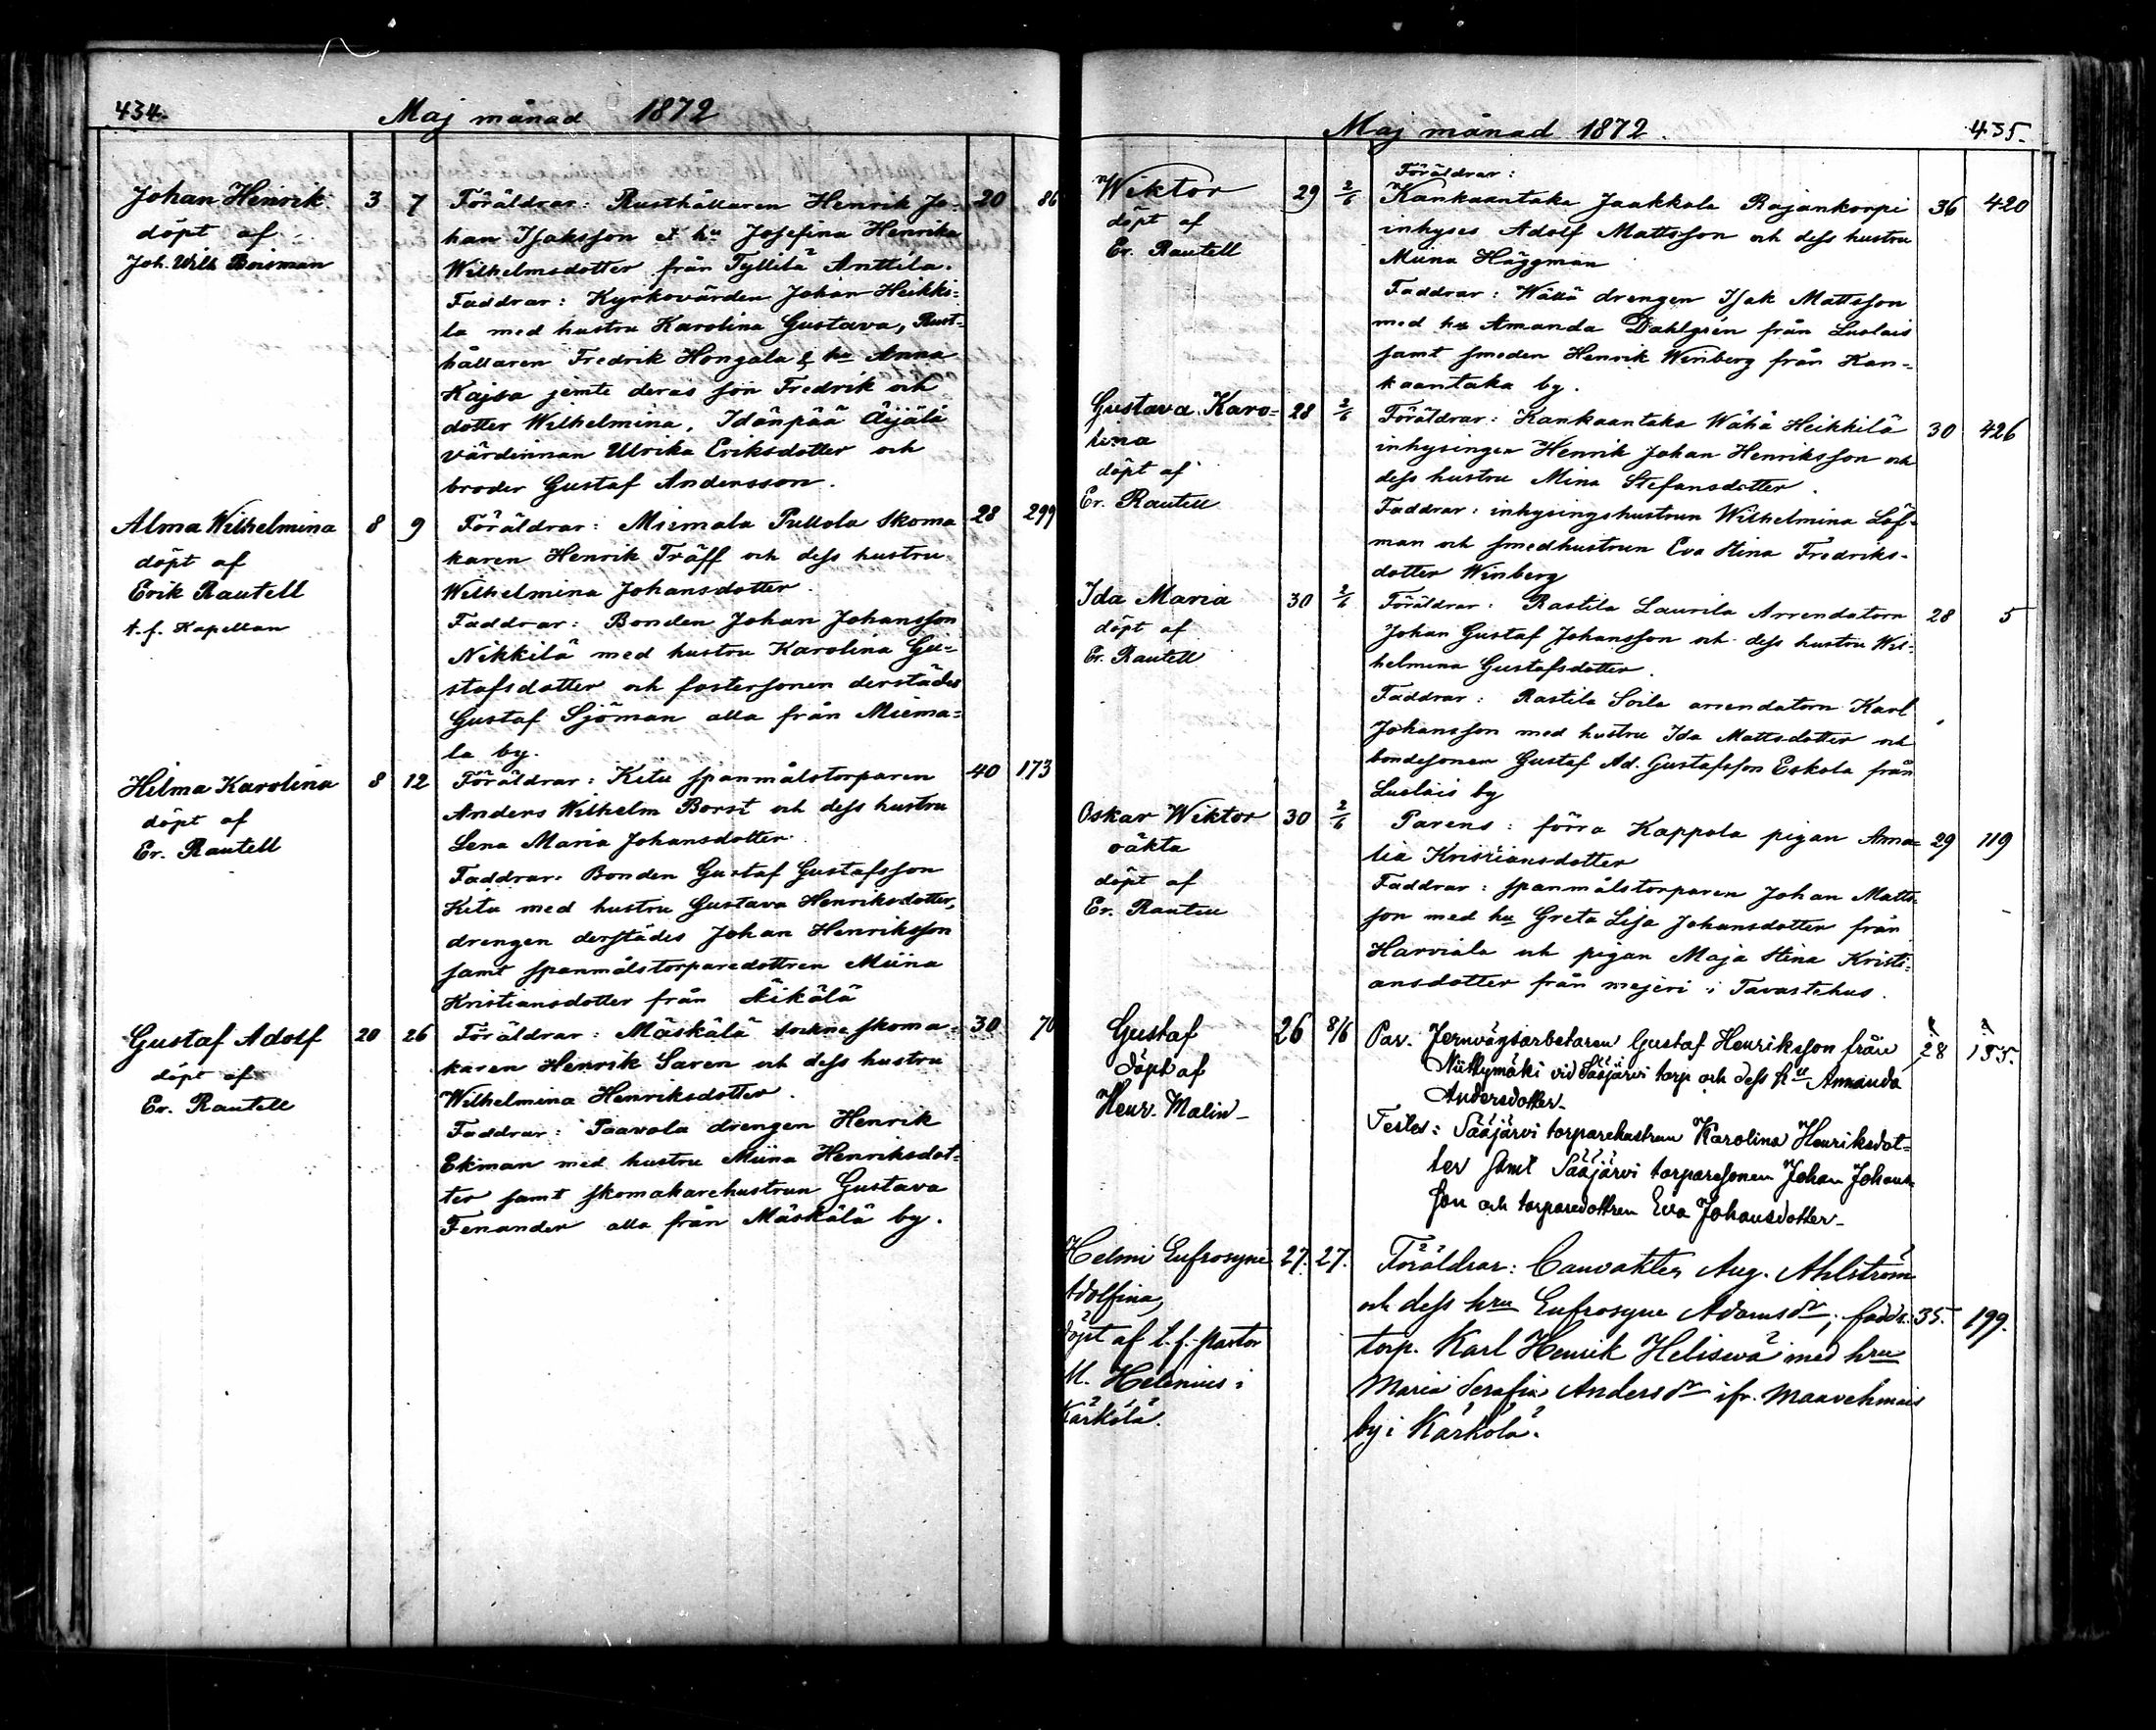 434.
Maj månad 1872
Johan Henrik 3 7 Föräldrar: Rusthållaren Henrik Jo- 20 86
döpt af
Joh. Wilh. Boisman
han Isaksson & hu Josefina Henrika
Wilhelmsdotter från Tyllilä Anttila.
Faddrar: Kyrkovärden Johan Heikki-
la med hustru Karolina Gustava, Rust-
hållaren Fredrik Hongala & hu Anna
Kajsa jemte deras son Fredrik och
dotter Wilhelmina, Idänpää Äijälä
värdinnan Ulrika Eriksdotter och
broder Gustaf Andersson.
Alma Wilhelmina 8 9 Föräldrar: Miemala Pullola Skoma 28 299
döpt af
Erik Rautell
t. f. Kapellan
karen Henrik Träff och dess hustru
Wilhelmina Johansdotter.
Faddrar: Bonden Johan Johansson
Nikkilä med hustru Karolina Gu-
stafsdotter och fostersonen derstädes
Gustaf Sjöman alla från Miema-
la by.
Hilma Karolina 8 12 Föräldrar: Keitu spanmålstorparen 40 173
döpt af
Er. Rautell
Anders Wilhelm Borst och dess hustru
Lena Maria Johansdotter.
Faddrar: Bonden Gustaf Gustafsson
Keitu med hustru Gustava Henriksdotter,
drengen derstädes Johan Henriksson
samt spanmålstorparedottren Miina
Kristiansdotter från Äikälä
Gustaf Adolf 20 26 Föräldrar: Mäskälä sockne skoma- 30 70
döpt af
Er. Rautell
karen Henrik Saren och dess hustru
Wilhelmina Henriksdotter.
Faddrar: Paavola drengen Henrik
Ekman med hustru Miina Henriksdot-
ter samt skomakarehustrun Gustava
Fenander alla från Mäskälä by.
Maj månad 1872.
435.
Föräldrar:
Wiktor 29 2/6 Kankaantaka Jaakkola Rajankorpi 36 420
döpt af
Er. Rautell
inhyses Adolf Mattsson och dess hustru
Miina Häggman
Faddrar: drengen Isak Mattsson
med hu Amanda Dahlgrén från Luolais
samt smeden Henrik Winberg från Kan-
kaantaka by.
Gustava Karo- 28 2/6 Föräldrar: Kankaantaka Wähä Heikkilä 30 426
lina
döpt af
Er. Rautell
inhysingen Henrik Johan Henriksson och
dess hustru Mina Stefansdotter.
Faddrar: inhysingshustrun Wilhelmina Löf-
man och smedhustrun Eva Stina Fredriks-
dotter Winberg
Ida Maria 30 2/6 Föräldrar: Rastila Laurila Arrendatorn 28 5
döpt af
Er. Rautell
Johan Gustaf Johansson och dess hustru Wil-
helmina Gustafsdotter.
Faddrar: Rastila Soila arrendatorn Karl
Johansson med hustru Ida Mattsdotter och
bondesonen Gustaf Ad. Gustafsson Eskola från
Luolais by
Oskar Wiktor 30 2/6 Parens: förra Kappola pigan Ama- 29 119
oäkta
döpt af
Er. Rautell
lia Kristiansdotter
Faddrar: spanmålstorparen Johan Matts-
son med hu Greta Lisa Johansdotter från
Harviala och pigan Maja Stina Kristi-
ansdotter från mejeri i Tavastehus.
Gustaf 26 8/6 Par. Jernvägsarbetaren Gustaf Henriksson från 28 155.
döpt af
Henr. Malin
vid Sääjärvi torp och dess hu Amanda
Andersdotter.
Testes: Sääjärvi torparehustrun Karolina Henriksdot-
ter samt Sääjärvi torparesonen Johan Johans-
son och torparedottren Eva Johansdotter.
Helmi Eufrosyne 27. 27. Föräldrar: Banvakten Aug. Ahlström
Adolfina,
döpt af t. f. pastor
M. Helenius i
Kärkölä.
och dess hru Eufrosyne Adamsdr; fadd. 35. 199.
torp. Karl Henrik Helisevä med hru
Maria Serafia Andersdr ifr. Maavehmais
by i Kärkölä.